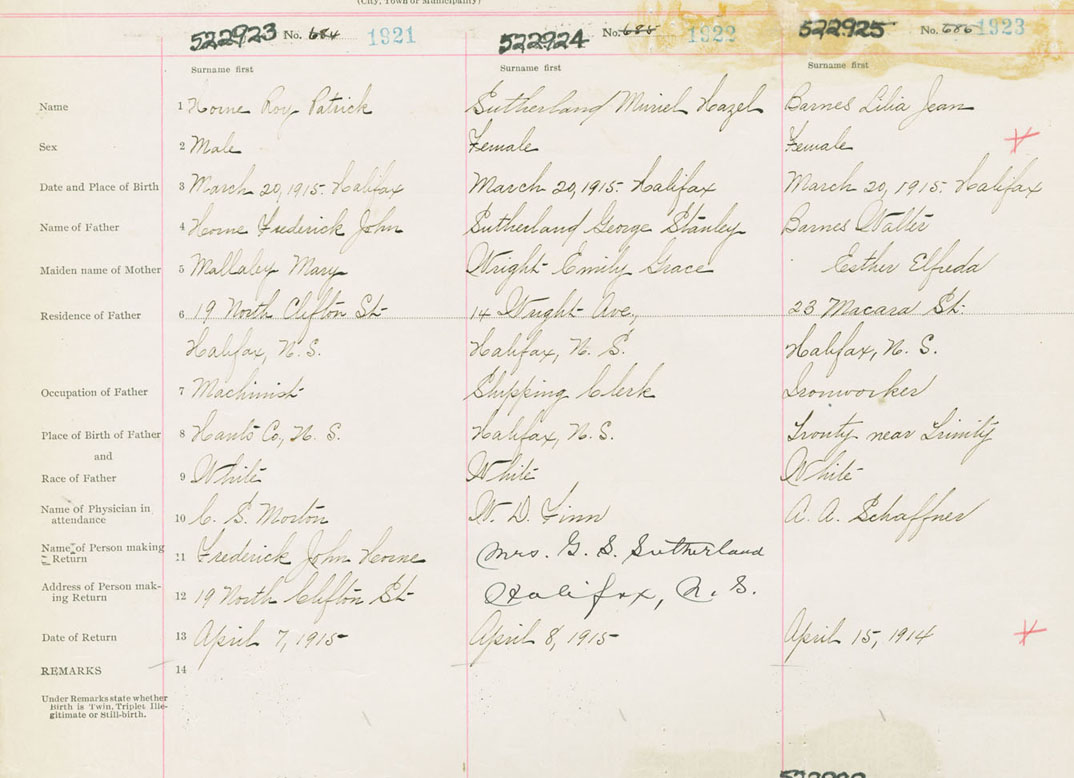 (City, Town or Municipality)
522923 No. 684 1921 522924 No. 685 1922 522925 No. 686 1923
Surname first Surname first Surname first
Name 1 Horne Roy Patrick Sutherland Muriel Hazel Barnes Lilia Jean
Sex 2 Male Female Female
Date and Place of Birth 3 March 20, 1915. Halifax March 20, 1915. Halifax March 20, 1915. Halifax
Name of Father 4 Horne Frederick John Sutherland George Stanley Barnes Walter
Maiden name of Mother 5 Mallaley Mary Wright Emily Grace Esther Elfreda
Residence of Father 6 19 North Clifton St. 14 Wright Ave., 23 Macara St.
Halifax, N. S. Halifax, N. S. Halifax, N. S.
Occupation of Father 7 Machinist Shipping Clerk Ironworker
Place of Birth of Father 8 Hants Co, N. S. Halifax, N. S. Trouty near Trinity
and
Race of Father 9 White White White
Name of Physician in
attendance 10 C. S. Morton W. D. Finn A. A. Schaffner
Name of Person making
Return 11 Frederick John Horne Mrs. G. S. Sutherland
Address of Person mak-
ing Return 12 19 North Clifton St. Halifax, N. S.
Date of Return 13 April 7, 1915 April 8, 1915 April 15, 1914
REMARKS 14
Under Remarks state whether
Birth is Twin, Triplet, Ille-
gitimate or Still-birth.